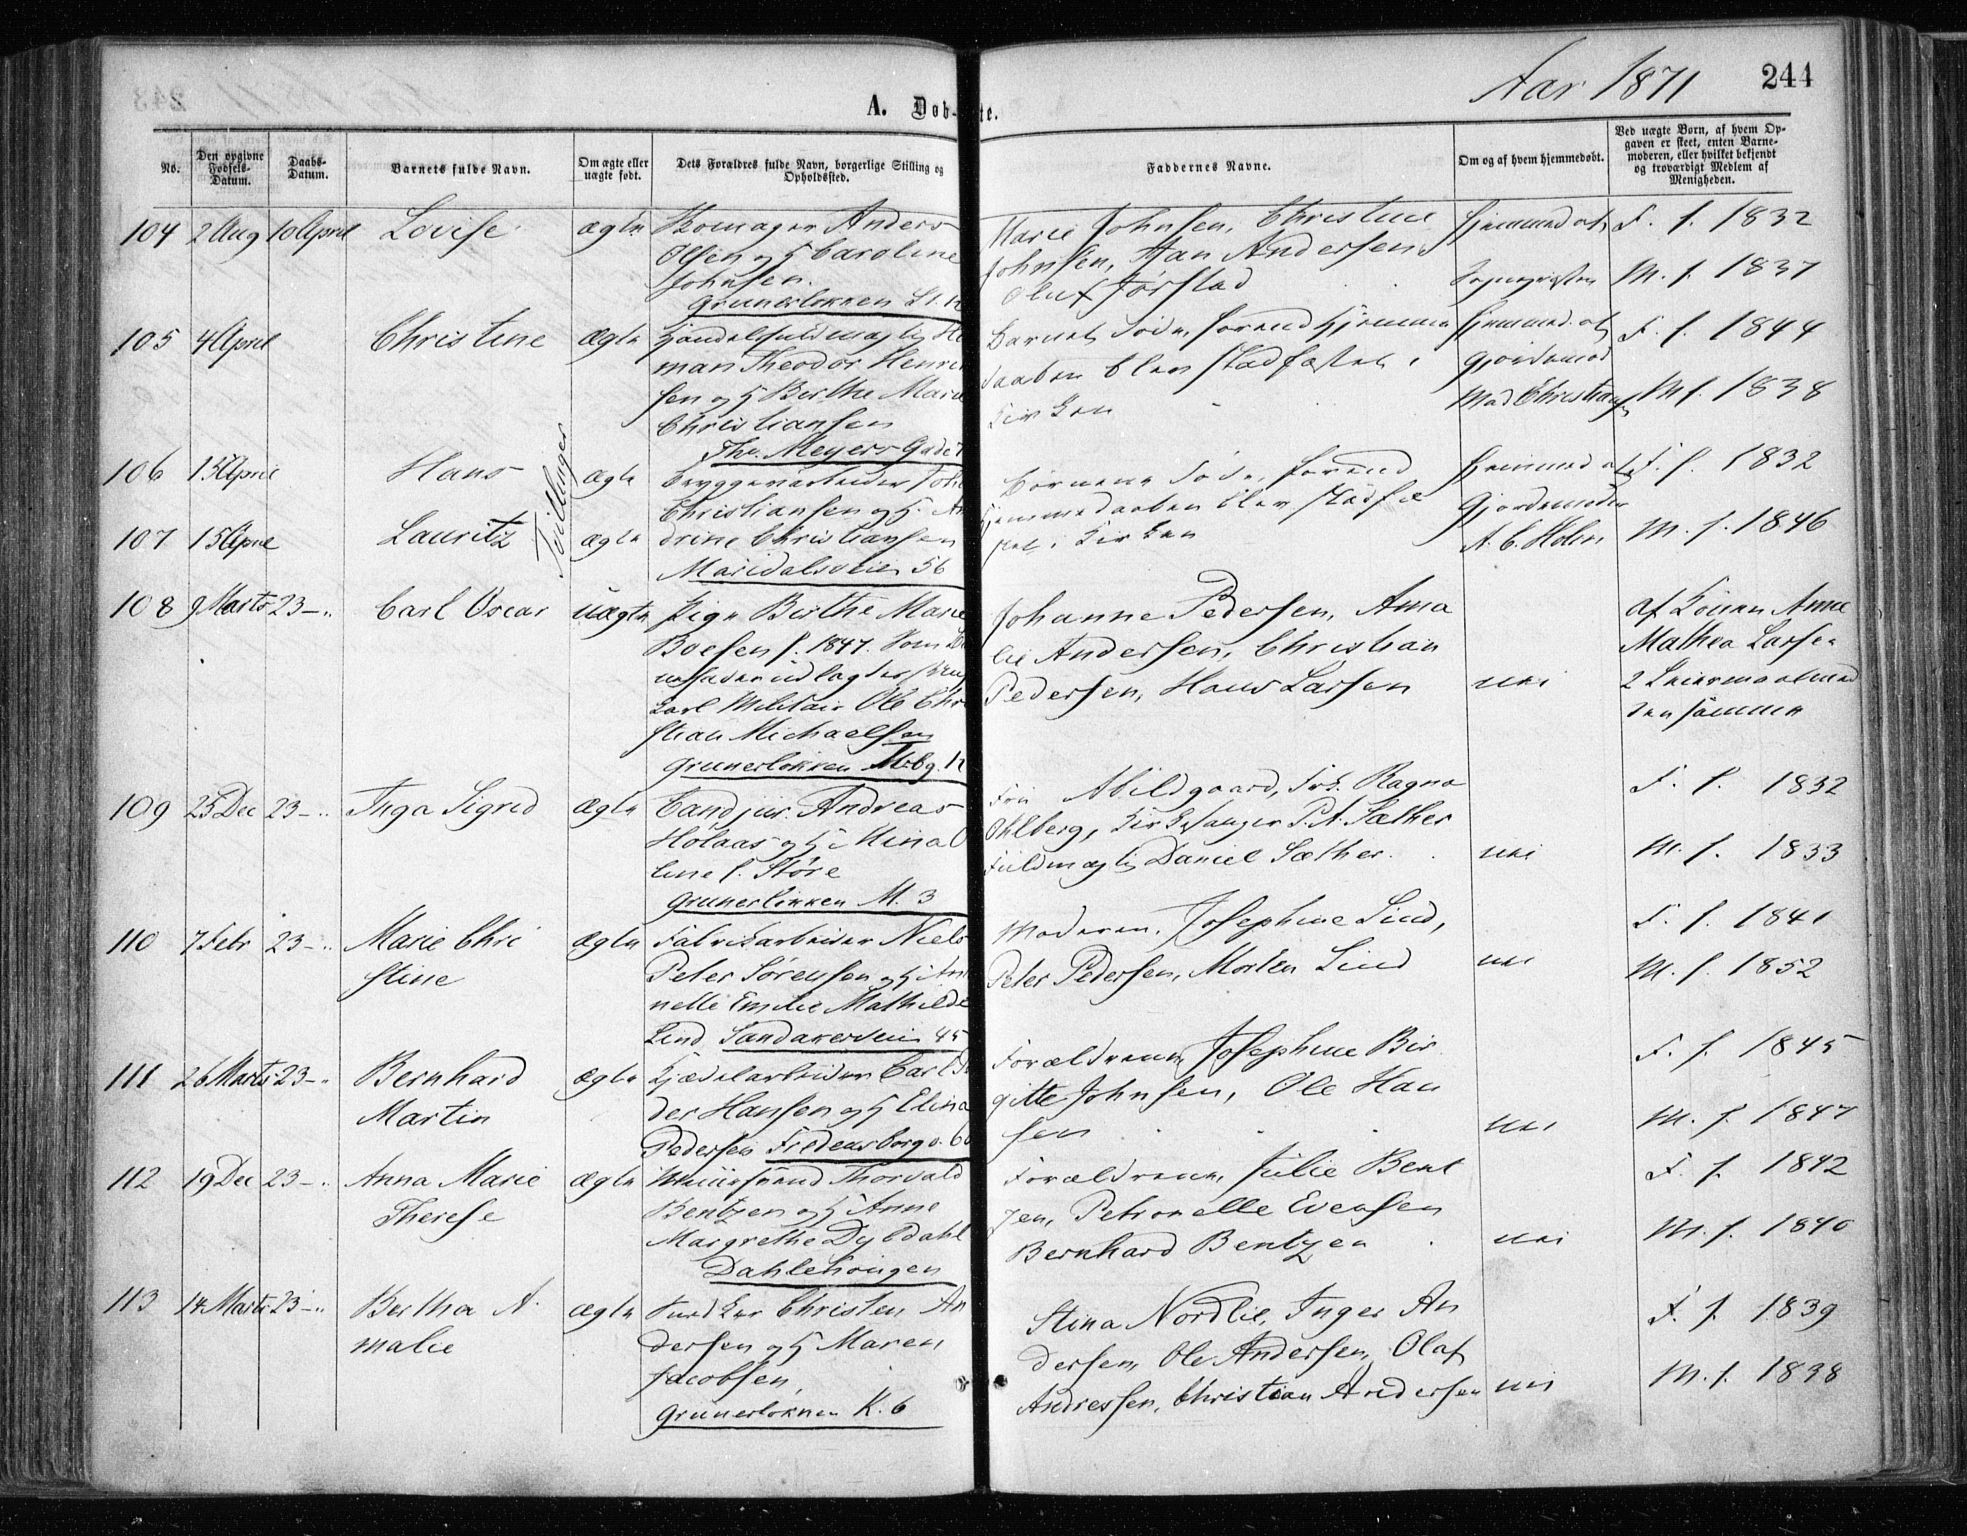 Aar 1871
244
A. Døb-
te.
No.
Den opgivne Fødsels-Datum.
Daabs-Datum.
Barnets fulde Navn.
Om ægte eller uægte født.
Dets Forældres fulde Navn, borgerlige Stilling og Opholdssted.
Faddernes Navne.
Om og af hvem hjemmedøbt.
Ved uægte Børn, af hvem Op-
gaven er skeet, enten Barne-
moderen, eller hvilket bekjendt
og troværdigt Medlem af
Menigheden.
104 2 Aug 10 April Lovise ægte Skomager Anders
Olsen og H Caroline
Johnsen.
Grunerløkken
Marie Johnsen, Christine
Johnsen, Andersen
Oluf Jørstad
hjemmedøbt
F. f. 1832
M. f. 1837
105 4 April Christine ægte Handelsfuldmægtig He
man Theodor Henrik
sen og H Berthe Marie
Christiansen
Th. Meyers Gade
Barnet døde, forend Hjemme
daaben blev stadfæstet i
Kirken
hjemmed. af
Gjordemod
Mad Christiansen
F. f. 1844
M f. 1838
106 15 April Hans ægte Bryggeriarbeider Joh
Christiansen og H. An
Tvillinger
107 15 April Lauritz ægte drine Christiansen
Maridalsveien 56
Børnene døde, forend
Hjemmedaaben blev stadfæ
stet i Kirken
hjemmed af
Gjordemoder
A. C. Holm
F. f. 1832
M. f. 1846
108 9 Marts 23 - " Carl Oscar uægte Pige Berthe Marie
Boesen f. 1847. Som B
nefader udlagdes
karl Militair Ole Chri
stian Michaelsen
Grunerløkken
Johanne Pedersen, Ama
lie Andersen, Christian
Pedersen, Hans Larsen
nei
af Konen Anne
Mathea Larsen
2 Leiermaal med
den samme
109 25 Dec 23 - " Inga Sigrid ægte Cand jur. Andreas
Hølaas og H Mina O
line f. Støre
Grunerløkken M. 3
Fru Abildgaard, Frk. Ragna
Ohlberg, Kirkesanger P. A. Sæther
Fuldmægtig Daniel Sæther.
nei
F. f. 1832
M. f. 1833
110 7 Febr 23 - " Marie Chri
stine
ægte Fabrikarbeider Niels
Peter Sørensen og H An
nette Emilie Mathilde
Lind Sandakerveien 45
Moderen, Josephine Lind,
Peter Pedersen, Morten Lind
nei
F. f. 1841
M. f. 1852
111 26 Marts 23 - " Bernhard
Martin
ægte Kjædelarbeider Carl
der Hansen og H Elina
Pedersen Fredensborgv. 60
Forældrene, Josephine Bir
gitte Johnsen, Ole Han
sen
nei
F. f. 1845
M. f. 1847
112 19 Dec 23 - " Anna Marie
Therese
ægte Muursvend Thorvald
Bentzen og H Anne
Margrethe Dyldahl
Dahlehougen
Forældrene, Julie Bent
zen, Petronelle Evensen
Bernhard Bentzen
nei
F. f. 1842
M. f. 1840
113 14 Marts 23 - " Bertha A
malie
ægte Snedker Christen An
dersen og H Maren
Jacobsen,
Grunerløkken K. 6
Stina Nordlie, Inger An
dersen, Ole Andersen, Olaf
Andressen, Christian Andersen
nei
F. f. 1839
M. f. 1838